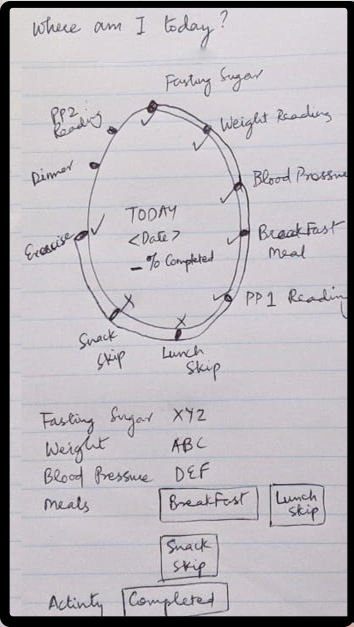 Where am I today?
Fasting Sugar
PP2
Reading
Weight Reading
Dinner
Blood Pressure
TODAY
<Date>
_ % Completed
Exercise
BreakFast
Meal
PP1 Reading
Snack
Skip
Lunch
Skip
Fasting Sugar XYZ
Weight ABC
Blood Pressure DEF
Meals BreakFast Lunch
Skip
Snack
Skip
Activity Completed